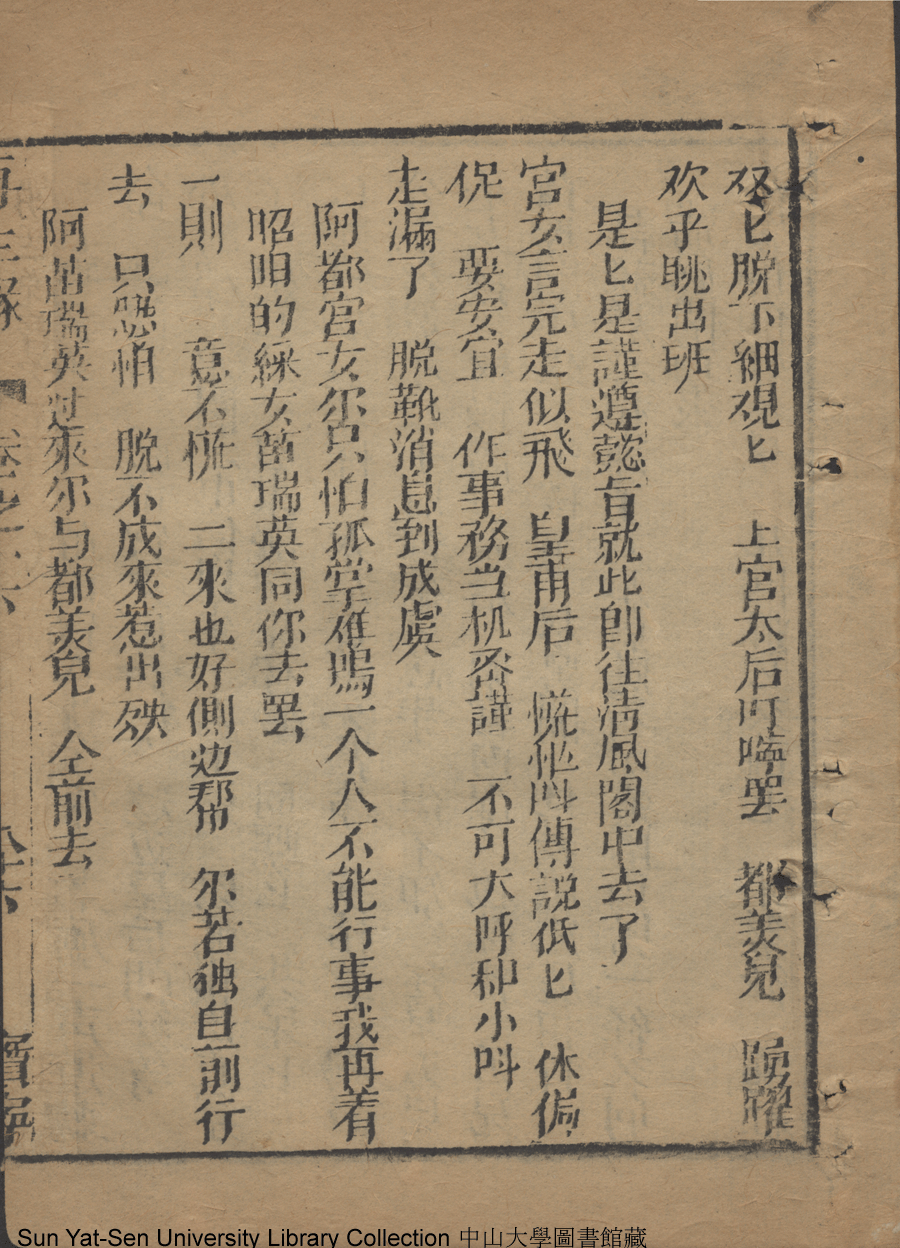 双匕脱下細硯匕　上官太后叮嚀罢　都美兒　踴躍
欢乎眺出班
是匕是謹遵懿旨就此即往清風閣中去了
宮女言完走似飛　皇甫后　慌忙叫傳説低匕　休偏
促　要安宜　作事務当机宻謹　不可大呼和小呌
走漏了　脱靴消息到成虞
阿都宮女尔只怕孤掌难鳴一个人不能行事我再着
昭阳的綵女苗瑞英同你去罢
一則　意不慌　二來也好側边帮　尔若独自前行
去　只恐怕　脱不成來惹出殃
阿苗瑞英过來尔与都美兒　仝前去
再生緣　卷之十六　八十六　寳寧
Sun Yat-Sen University Library Collection 中山大學圖書館藏